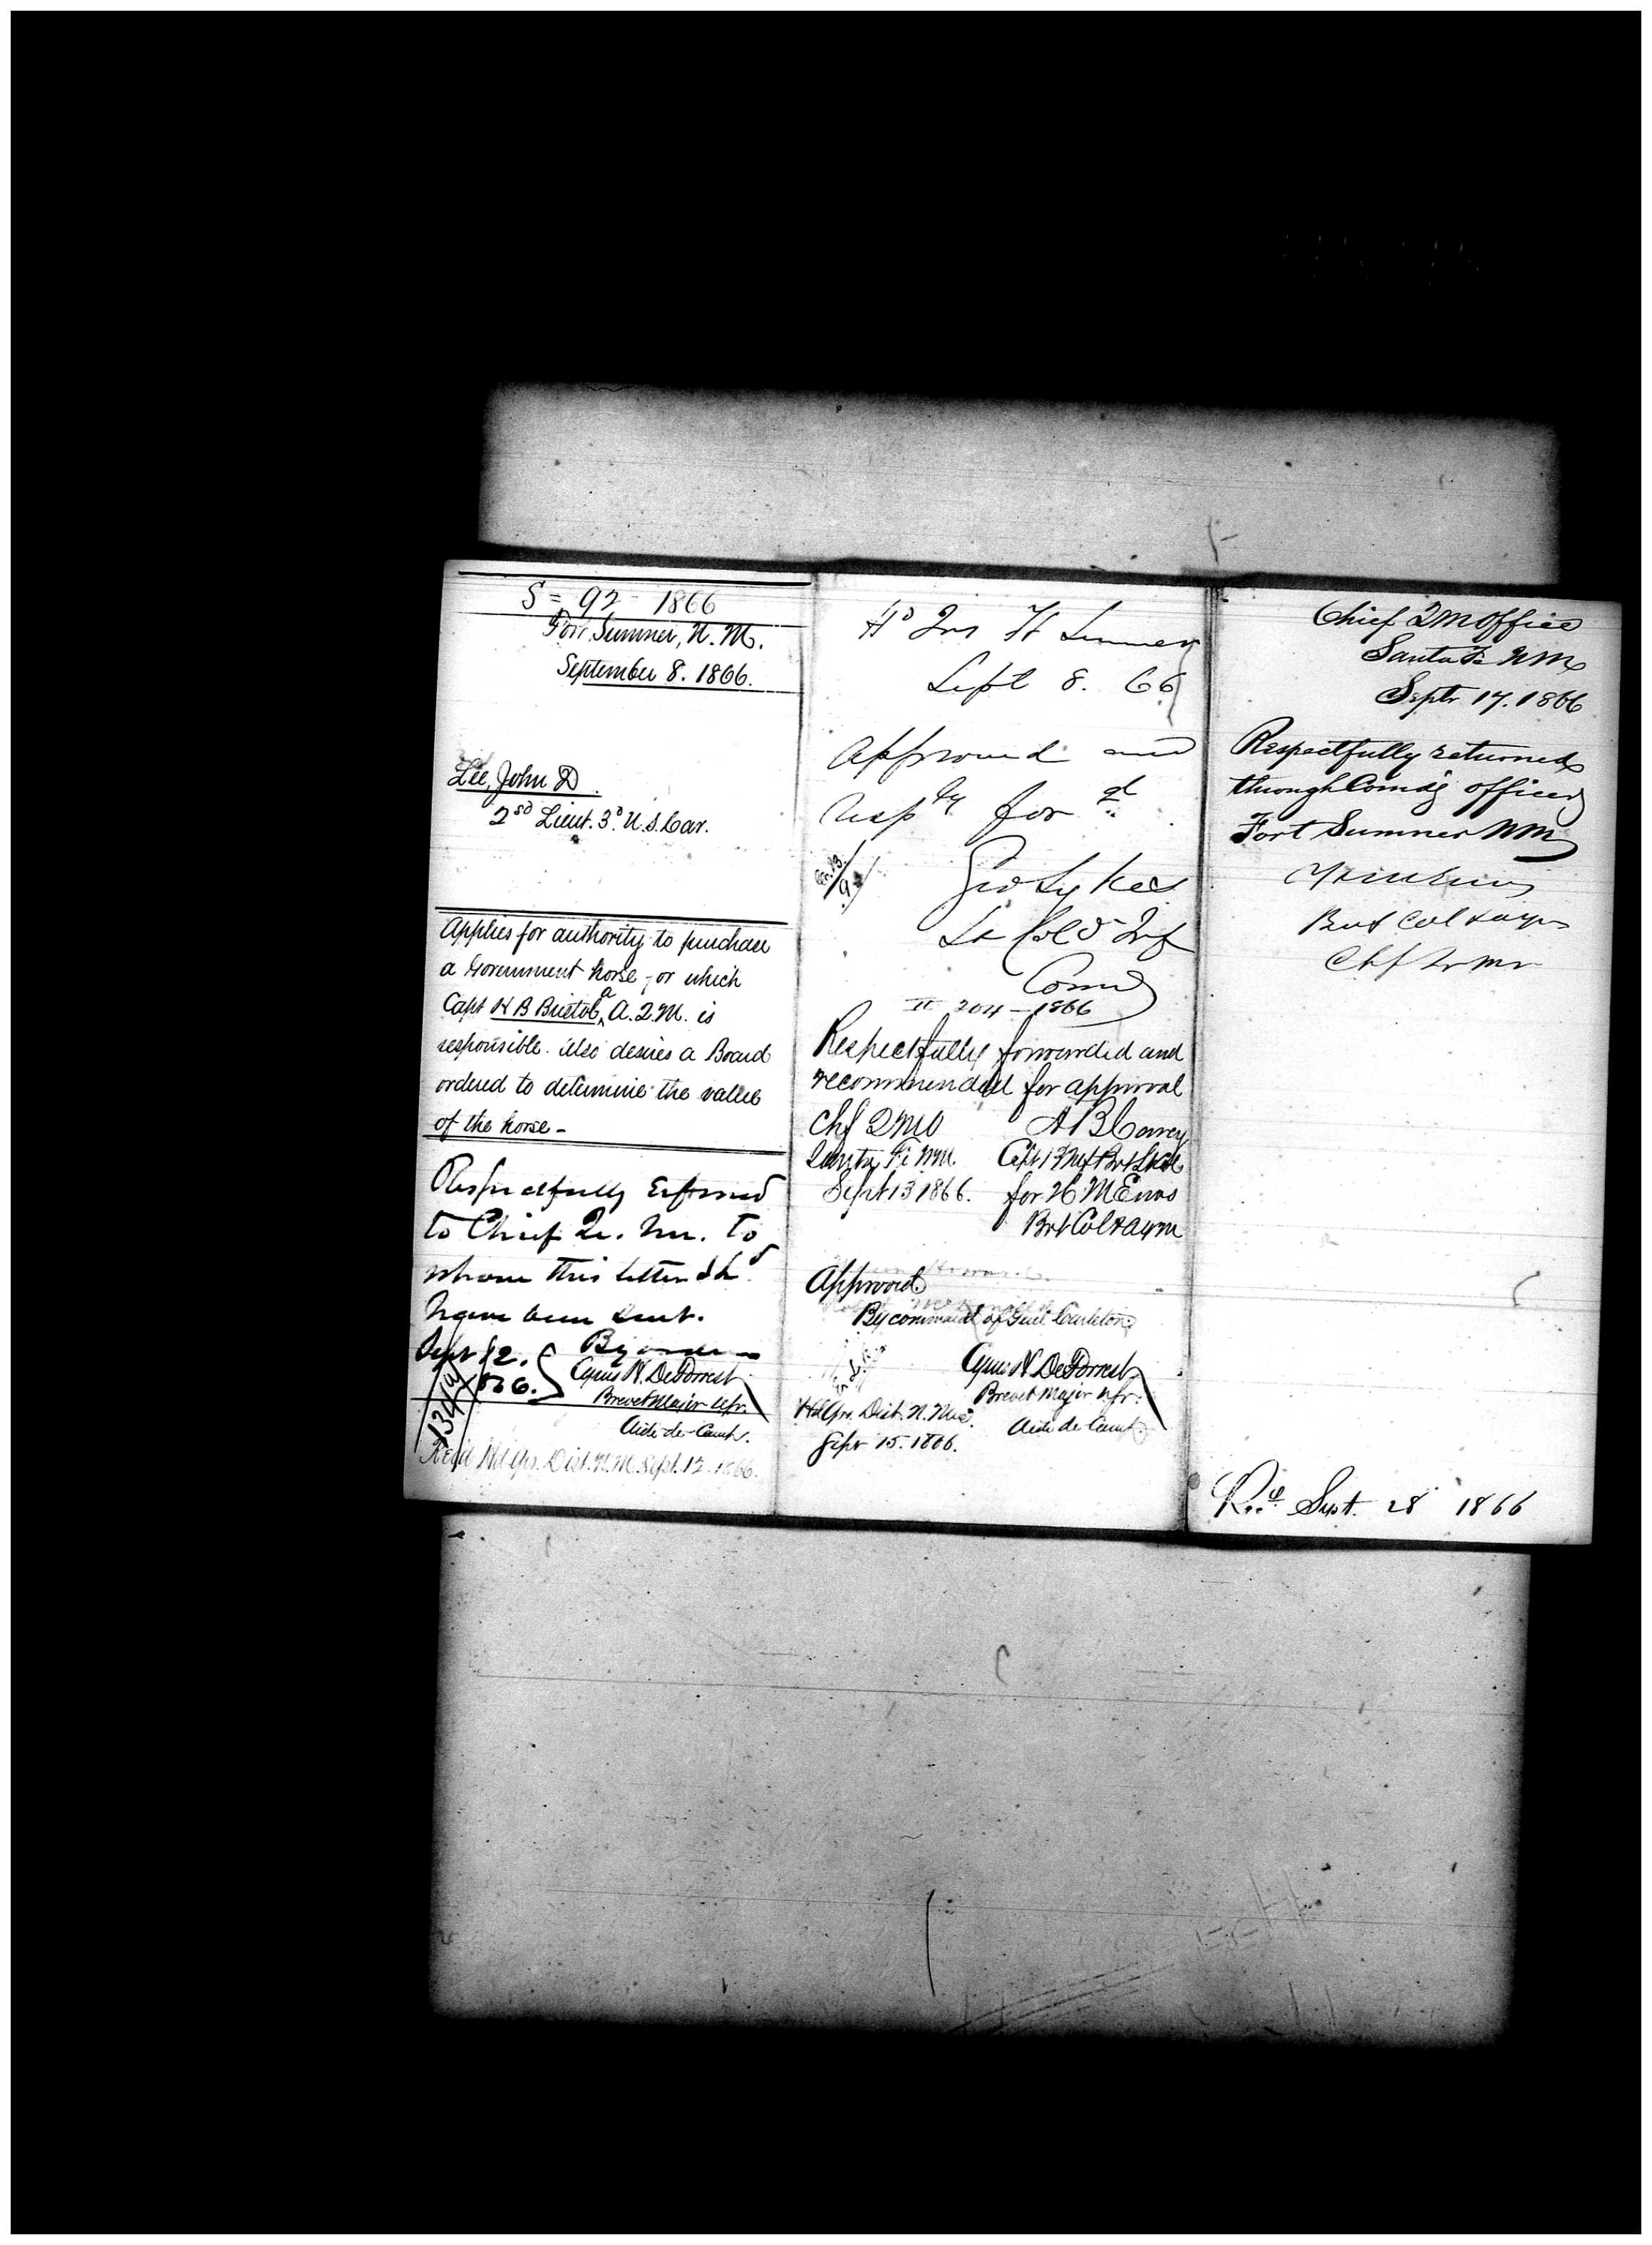 S = 92 - 1866
Fort Sumner, N. M.
September 8. 1866.
Lee, John D.
2nd Lieut. 3d U.S. Cav.
Applies for authority to purchase
a Government horse, for which
Capt H B Bristol, a A. Q. M. is
responsible. Also desires a Board
ordered to determine the value
of the horse -
Respectfully referred
to Chief Qr. Mr. to
whom this letter shd
have been sent.
Sept 12. By order
1866. Cyrus H. DeForrest
Brevet Major Vols.
Aide-de-Camp.
Recd Hd Qrs. Dist. N. M. Sept. 12. 1866.
Hd Qrs Ft Sumner
Sept 8. 66
Approved and
resply for d
Geo Sykes
Lt Col 5 Inf
Comd
II 204 - 1866
Respectfully forwarded and
recommended for approval
Chf QMO A B Carey
Santa Fe NM Capt 13 Inf Bvt Lt Col
Sept 13 1866. for H. M Enos
Bvt Col & AQM
Approved.
By command of Genl Carleton
Cyrus H. DeForrest
Brevet Major Vols.
Hd Qrs. Dist. N. Mex. Aide de Camp.
Sept 15. 1866.
Chief QM Office
Santa Fe NM
Septr 17. 1866
Respectfully returned
through Comdg officer
Fort Sumner NM
H M Enos
Bvt Col & aqm
Chf Qr Mr
Recd Sept. 28 1866